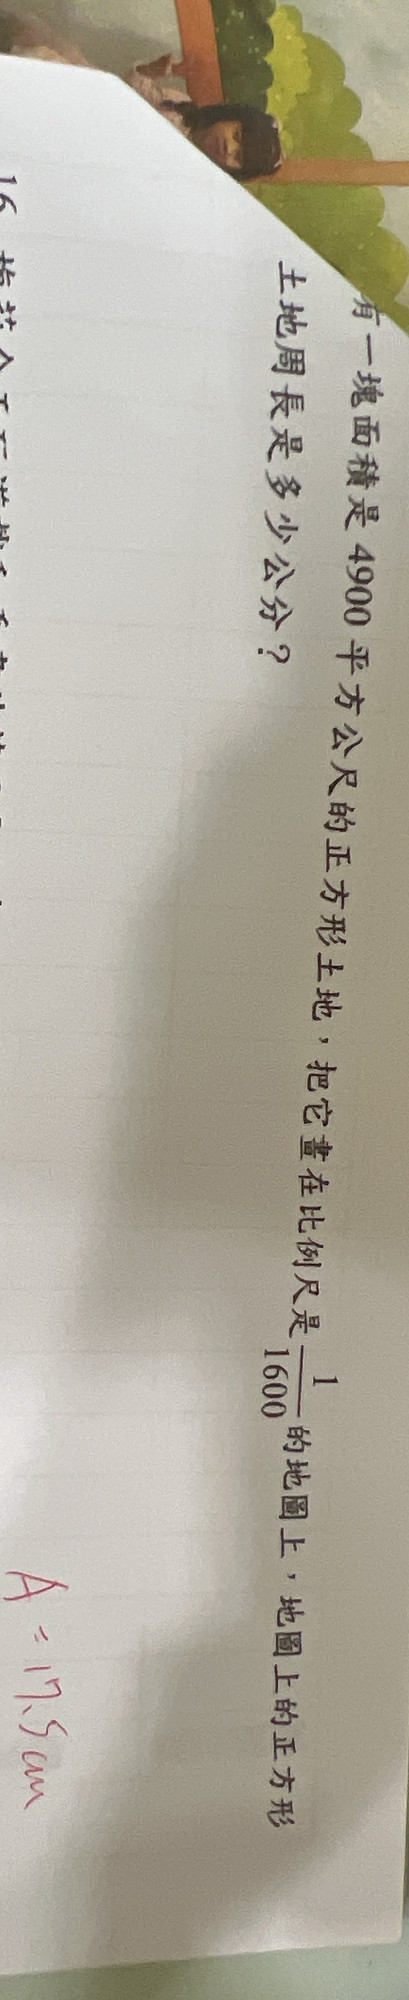 有一塊面積是 4900 平方公尺的正方形土地，把它畫在比例尺是 1/1600 的地圖上，地圖上的正方形
土地周長是多少公分？
A = 17.5 cm
16